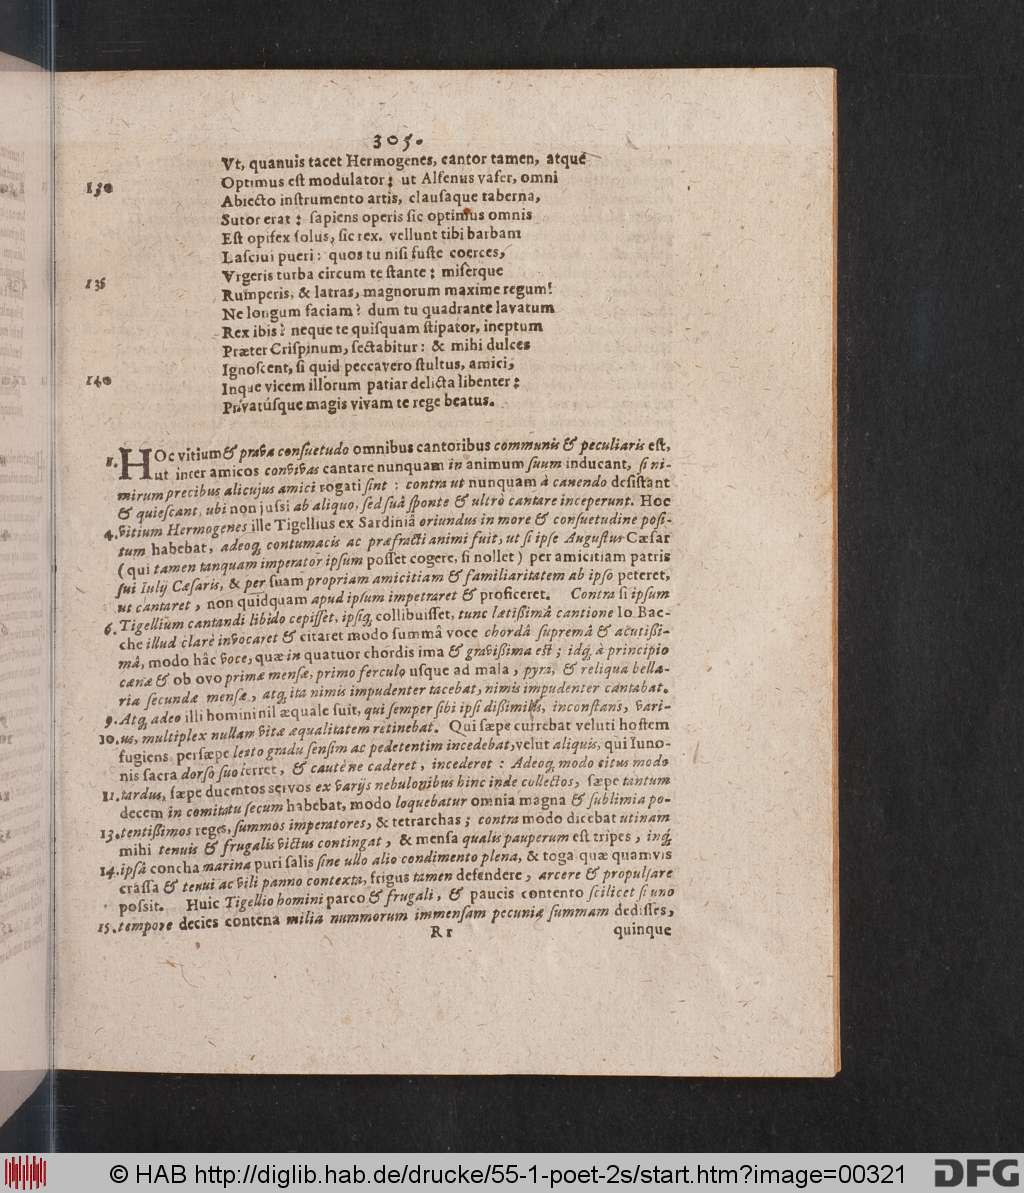 305.
Vt, quanuis tacet Hermogenes, cantor tamen, atque
130 Optimus est modulator; ut Alfenus vafer, omni
Abiecto instrumento artis, clausaque taberna,
Sutor erat: sapiens operis sic optimus omnis
Est opifex solus, sic rex. vellunt tibi barbam
Lasciui pueri: quos tu nisi fuste coerces,
136 Vrgeris turba circum te stante; miserque
Rumperis, & latras, magnorum maxime regum!
Ne longum faciam? dum tu quadrante lavatum
Rex ibis? neque te quisquam stipator, ineptum
Præter Crispinum, sectabitur: & mihi dulces
Ignoscent, si quid peccavero stultus, amici,
140 Inque vicem illorum patiar delicta libenter;
Privatúsque magis vivam te rege beatus.
1. HOc vitium & prava consuetudo omnibus cantoribus communis & peculiaris est,
ut inter amicos convivas cantare nunquam in animum suum inducant, si ni-
mirum precibus alicujus amici rogati sint: contra ut nunquam à canendo desistant
& quiescant, ubi non jussi ab aliquo, sed suâ sponte & ultrò cantare inceperunt. Hoc
4. vitium Hermogenes ille Tigellius ex Sardiniâ oriundus in more & consuetudine posi-
tum habebat, adeoq; contumacis ac præfracti animi fuit, ut si ipse Augustus Cæsar
(qui tamen tanquam imperator ipsum posset cogere, si nollet) per amicitiam patris
sui Iulij Cæsaris, & per suam propriam amicitiam & familiaritatem ab ipso peteret,
ut cantaret, non quidquam apud ipsum impetraret & proficeret. Contra si ipsum
6. Tigellium cantandi libido cepisset, ipsiq; collibuisset, tunc lætißimâ cantione Io Bac-
che illud clarè invocaret & citaret modo summâ voce chordâ supremâ & acutißi-
mâ, modo hâc voce, quæ in quatuor chordis ima & gravißima est; idq; à principio
cœnæ & ob ovo primæ mensæ, primo ferculo usque ad mala, pyra, & reliqua bella-
ria secundæ mensæ, atq; ita nimis impudenter tacebat, nimis impudenter cantabat.
9. Atq; adeo illi homini nil æquale fuit, qui semper sibi ipsi dißimilis, inconstans, vari-
10. us, multiplex nullam vitæ æqualitatem retinebat. Qui sæpe currebat veluti hostem
fugiens, persæpe lento gradu sensim ac pedetentim incedebat, velut aliquis, qui Iuno-
nis sacra dorso suo ferret, & cautè ne caderet, incederet: Adeoq; modo citus modo
11. tardus, sæpe ducentos servos ex varijs nebulonibus hinc inde collectos, sæpe tantum
decem in comitatu secum habebat, modo loquebatur omnia magna & sublimia po-
13. tentißimos reges, summos imperatores, & tetrarchas; contra modo dicebat utinam
mihi tenuis & frugalis victus contingat, & mensa qualis pauperum est tripes, inq;
14. ipsâ concha marina puri salis sine ullo alio condimento plena, & toga quæ quamvis
crassa & tenui ac vili panno contexta, frigus tamen defendere, arcere & propulsare
possit. Huic Tigellio homini parco & frugali, & paucis contento scilicet si uno
15. tempore decies contena milia nummorum immensam pecuniæ summam dedisses,
Rr quinque
© HAB http://diglib.hab.de/drucke/55-1-poet-2s/start.htm?image=00321
DFG